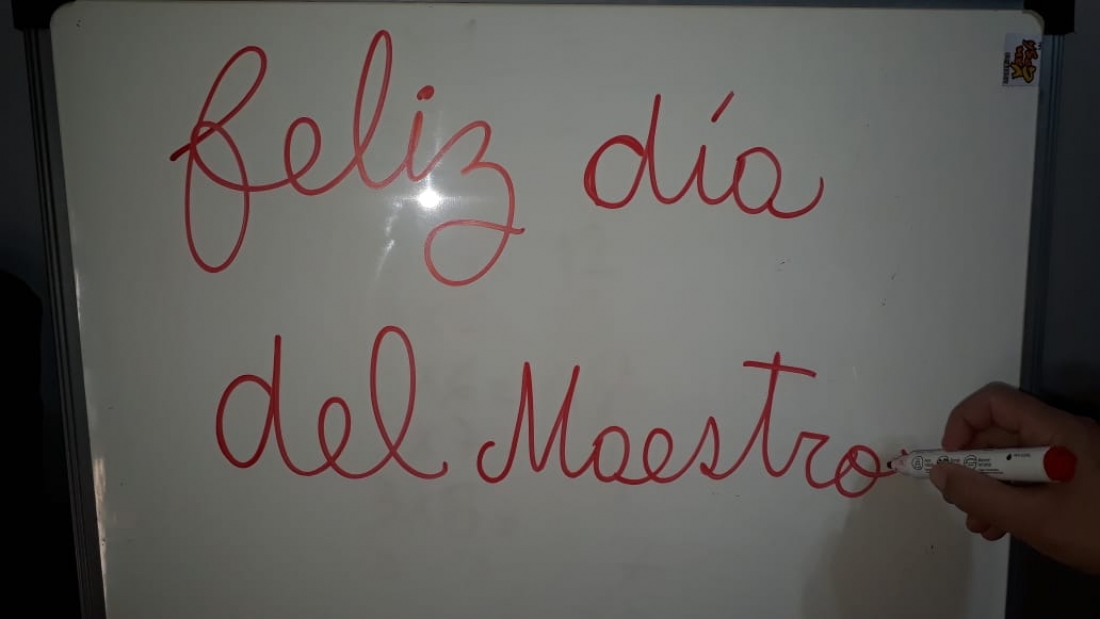 feliz día
del Maestro